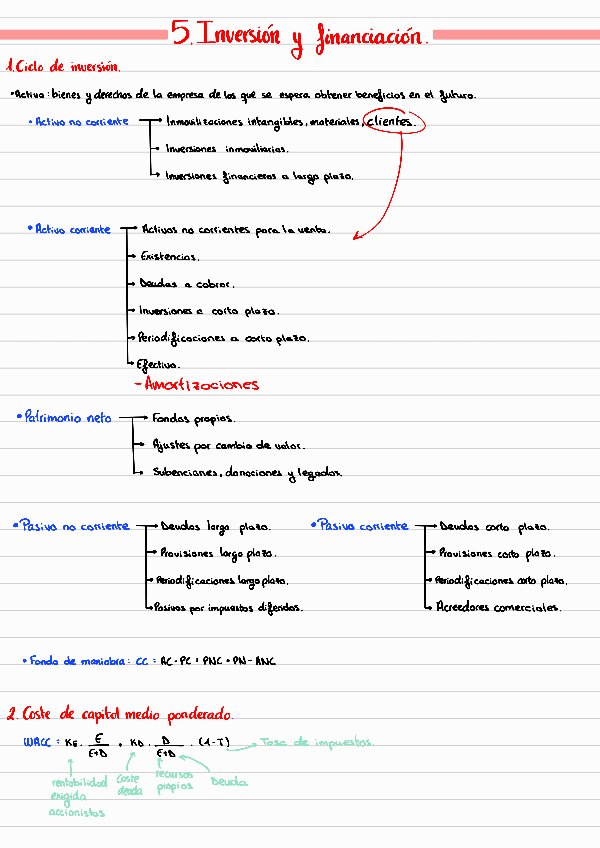 5. Inversión y financiación.
1. Ciclo de inversión.
• Activo: bienes y derechos de la empresa de los que se espera obtener beneficios en el futuro.
• Activo no corriente → Inmovilizaciones intangibles, materiales, clientes.
→ Inversiones inmobiliarias.
→ Inversiones financieras a largo plazo.
• Activo corriente → Activos no corrientes para la venta.
→ Existencias.
→ Deudas a cobrar.
→ Inversiones a corto plazo.
→ Periodificaciones a corto plazo.
→ Efectivo.
- Amortizaciones
• Patrimonio neto → Fondos propios.
→ Ajustes por cambio de valor.
→ Subenciones, donaciones y legados.
• Pasivo no corriente → Deudas largo plazo.
→ Provisiones largo plazo.
→ Periodificaciones largo plazo.
→ Pasivos por impuestos diferidos.
• Pasivo corriente → Deudas corto plazo.
→ Provisiones corto plazo.
→ Periodificaciones corto plazo.
→ Acreedores comerciales.
• Fondo de maniobra: CC = AC - PC = PNC + PN - ANC
2. Coste de capital medio ponderado.
WACC = KE · E/E+D + KD · D/E+D · (1-T) → Tasa de impuestos.
rentabilidad exigida accionistas
Coste deuda
recursos propios
Deuda